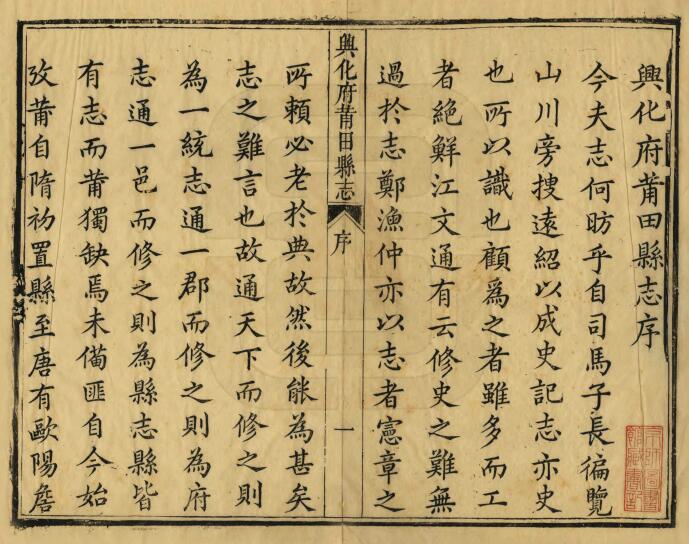 興化府莆田縣志序
今夫志何昉乎自司馬子長徧覽
山川旁搜遠紹以成史記志亦史
也所以識也顧為之者雖多而工
者絕鮮江文通有云修史之難無
過於志鄭漁仲亦以志者憲章之
興化府莆田縣志
序
一
所賴必老於典故然後能為甚矣
志之難言也故通天下而修之則
為一統志通一郡而修之則為府
志通一邑而修之則為縣志縣皆
有志而莆獨缺焉未備匪自今始
攷莆自隋初置縣至唐有歐陽詹